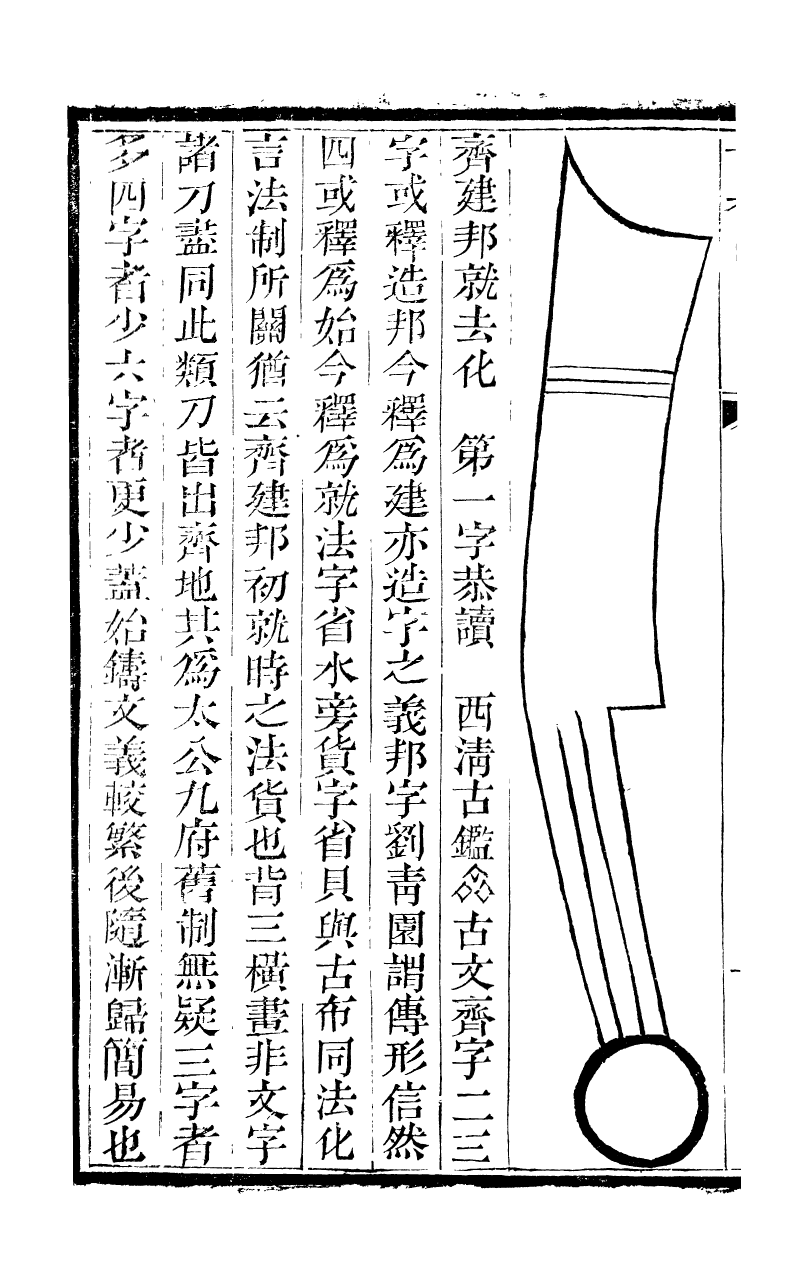 齊建邦就去化　第一字恭讀　西淸古鑑𠫼古文齊字二三
字或釋造邦今釋爲建亦造字之義邦字劉靑園謂傳形信然
四或釋爲始今釋爲就法字省水旁貨字省貝與古布同法化
言法制所關猶云齊建邦初就時之法貨也背三橫畫非文字
諸刀葢同此類刀皆出齊地其爲太公九府舊制無疑三字者
多四字者少六字者更少葢始鑄文義較繁後隨漸歸簡易也